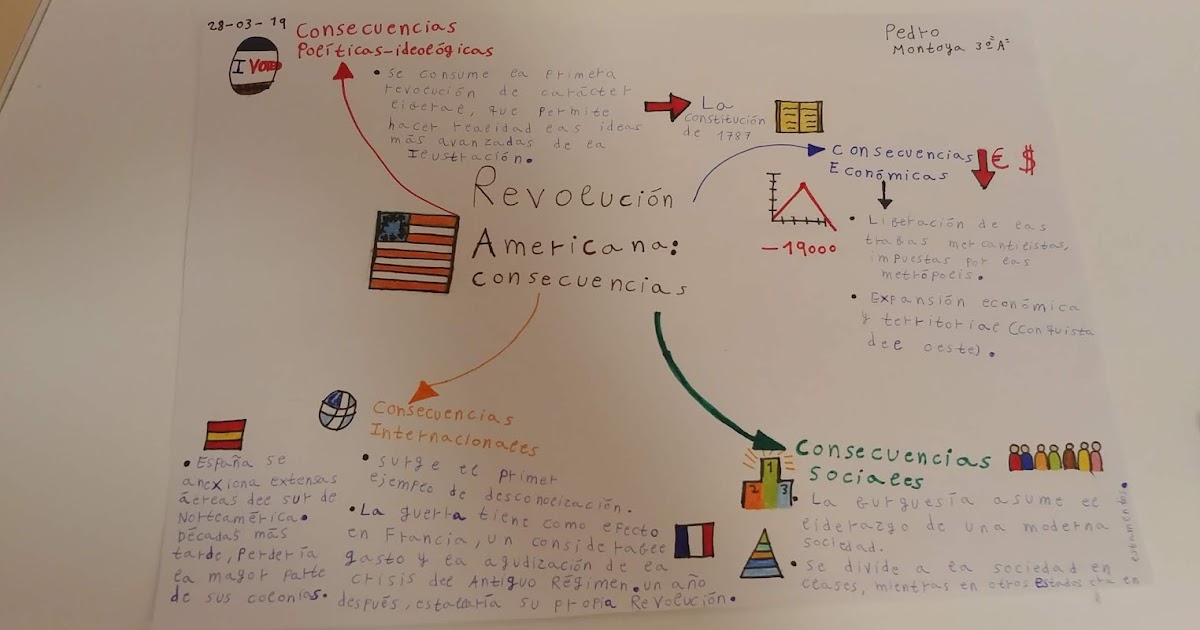 28-03-19
Pedro
Montoya 3ºA
Consecuencias
Políticas-ideológicas
I VOTED
• Se consume la primera
revolución de carácter
liberal, que permite
hacer realidad las ideas
más avanzadas de la
Ilustración.
La
constitución
de 1787
Revolución
Americana:
consecuencias
Consecuencias
Económicas
€ $
-19000
• Liberación de las
trabas mercantilistas,
impuestas por las
metrópolis.
• Expansión económica
y territorial (conquista
del oeste).
Consecuencias
Internacionales
• España se
anexiona extensas
áereas del sur de
Norteamérica.
Décadas más
tarde, perdería
la mayor parte
de sus colonias.
• Surge el primer
ejemplo de desconolización.
• La guerra tiene como efecto
en Francia, un considerable
gasto y la agudización de la
crisis del Antiguo Régimen. un año
después, estallaría su propia Revolución.
Consecuencias
sociales
1
2 3
• La burguesía asume el
liderazgo de una moderna
sociedad.
• Se divide a la sociedad en
clases, mientras en otros Estados era en
estamentos.